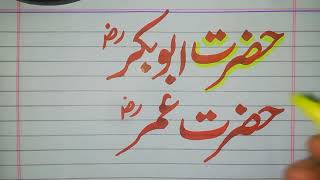 حضرت ابوبکرؓ
حضرت عمرؓ